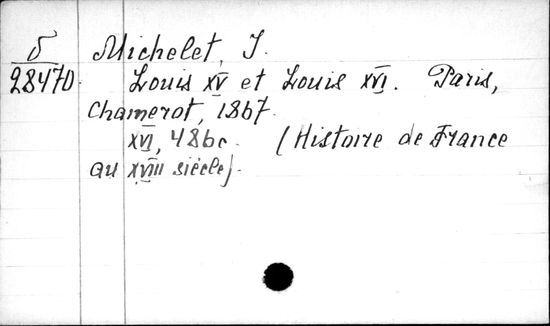 δ Michelet, J.
28470. Louis XV et Louis XVI. Paris,
Chamerot, 1867.
XVI, 486c. (Histoire de France
au XVIII siècle).